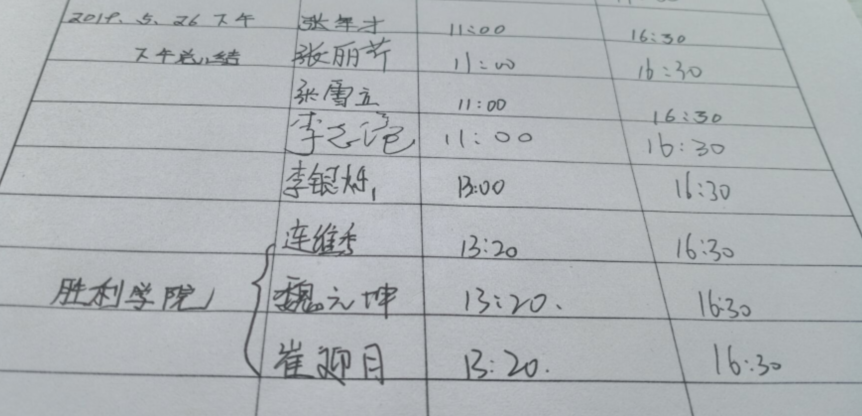 2019.5.26 下午 张年才 11:00 16:30
下午总结 张丽芹 11:00 16:30
张雪立 11:00 16:30
李 11:00 16:30
李银 13:00 16:30
连维秀 13:20 16:30
胜利学院 魏元坤 13:20. 16:30
崔迎月 13:20. 16:30